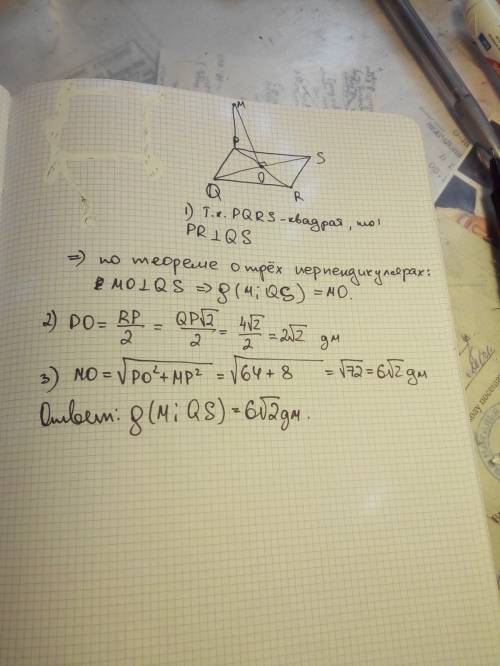 M
P
S
O
Q
R
1) Т.к. PQRS - квадрат, то:
PR ⊥ QS
=> по теореме о трёх перпендикулярах:
MO ⊥ QS => ρ(M; QS) = MO.
2) PO = RP/2 = QP√2/2 = 4√2/2 = 2√2 дм
3) MO = √(PO² + MP²) = √(64 + 8) = √72 = 6√2 дм
Ответ: ρ(M; QS) = 6√2 дм.